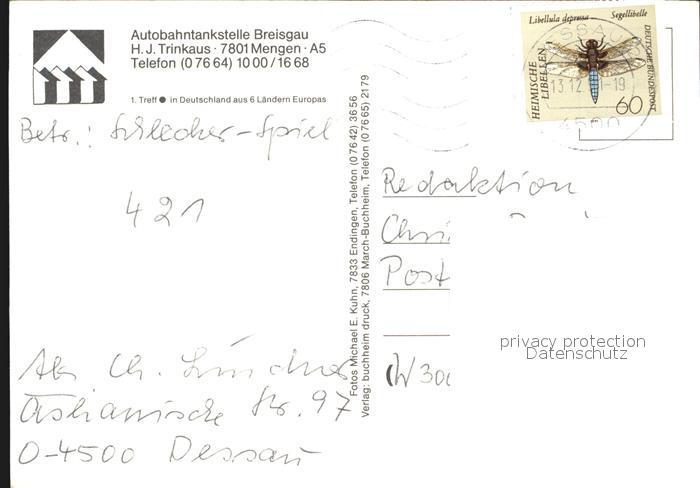 Autobahntankstelle Breisgau
H. J. Trinkaus · 7801 Mengen · A5
Telefon (0 76 64) 10 00 / 16 68
1. Treff ● in Deutschland aus 6 Ländern Europas
Betr.: Schlecker-Spiel
421
Abs. Ch.
Askanische Str. 97
O-4500 Dessau
Fotos Michael E. Kuhn, 7833 Endingen, Telefon (0 76 42) 36 56
Verlag: buchheim druck, 7806 March-Buchheim, Telefon (0 76 65) 21 79
Libellula depressa Segellibelle
HEIMISCHE LIBELLEN
DEUTSCHE BUNDESPOST
60
13.12. 1-19
4500
Redaktion
Chri
Post
(W 300
privacy protection
Datenschutz